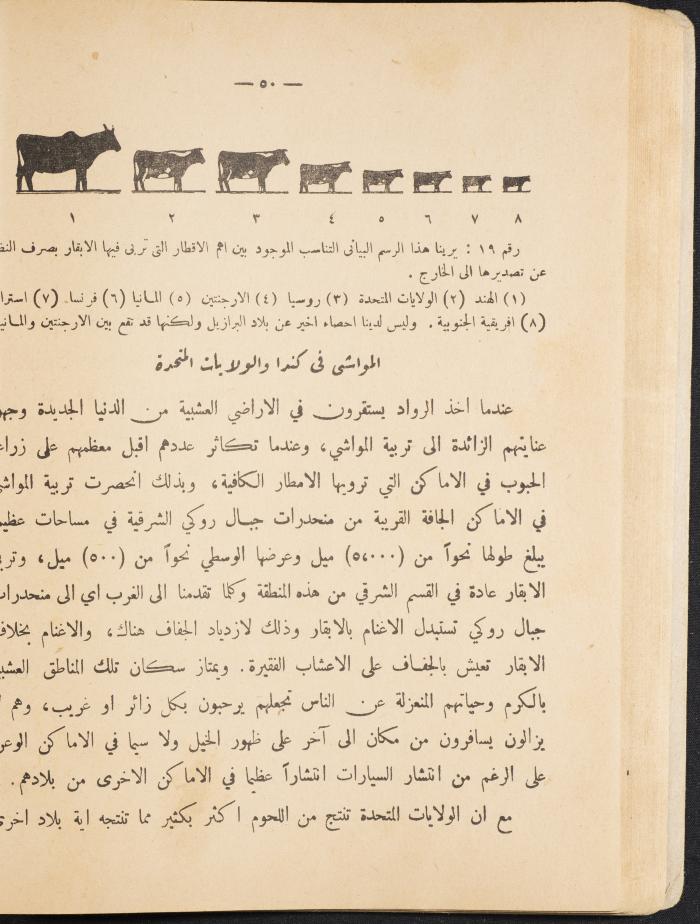 — ٥٠ —
١ ٢ ٣ ٤ ٥ ٦ ٧ ٨
رقم ١٩ : يرينا هذا الرسم البياني التناسب الموجود بين اهم الاقطار التي تربى فيها الابقار بصرف
عن تصديرها الى الخارج .
(١) الهند (٢) الولايات المتحدة (٣) روسيا (٤) الارجنتين (٥) المانيا (٦) فرنسا. (٧)
(٨) افريقية الجنوبية . وليس لدينا احصاء اخير عن بلاد البرازيل ولكنها قد تقع بين الارجنتين
المواشي في كندا والولايات المتحدة
عندما اخذ الرواد يستقرون في الاراضي العشبية من الدنيا الجديدة
عنايتهم الزائدة الى تربية المواشي، وعندما تكاثر عددهم اقبل معظمهم على
الحبوب في الاماكن التي ترويها الامطار الكافية، وبذلك انحصرت تربية
في الاماكن الجافة القريبة من منحدرات جبال روكي الشرقية في مساحات
يبلغ طولها نحواً من (٥،٠٠٠) ميل وعرضها الوسطي نحواً من (٥٠٠) ميل،
الابقار عادة في القسم الشرقي من هذه المنطقة وكلما تقدمنا الى الغرب اي الى
جبال روكي تستبدل الاغنام بالابقار وذلك لازدياد الجفاف هناك، والاغنام
الابقار تعيش بالجفاف على الاعشاب الفقيرة. ويمتاز سكان تلك المناطق
بالكرم وحياتهم المنعزلة عن الناس تجعلهم يرحبون بكل زائر او غريب، وهم
يزالون يسافرون من مكان الى آخر على ظهور الخيل ولا سيما في الاماكن
على الرغم من انتشار السيارات انتشاراً عظيما في الاماكن الاخرى من بلادهم.
مع ان الولايات المتحدة تنتج من اللحوم اكثر بكثير مما تنتجه اية بلاد